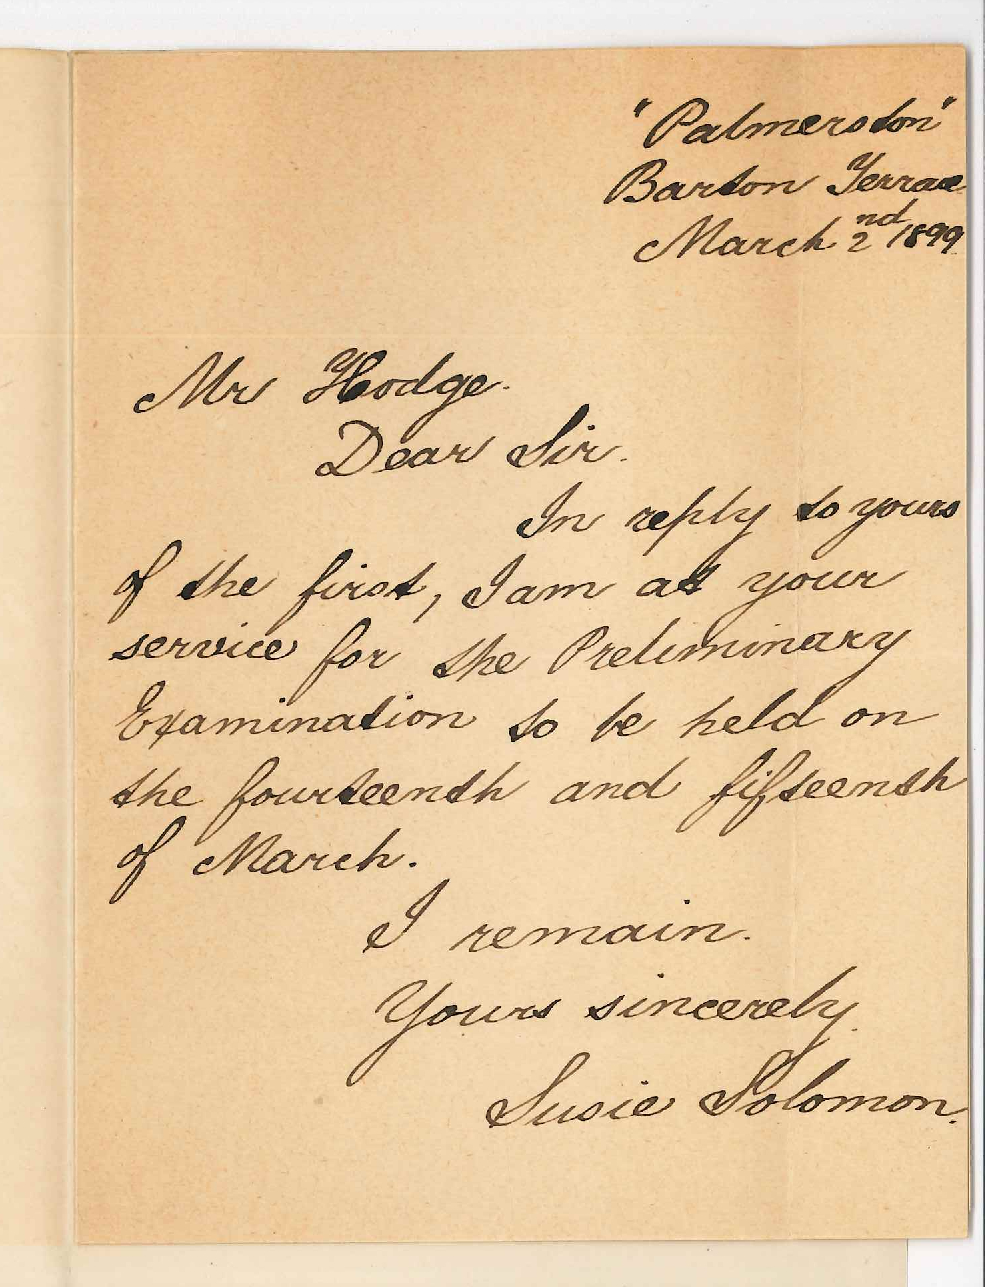 "Palmerston"
Barton Terrace
March 2nd 1899
Mr Hodge.
Dear Sir.
In reply to yours
of the first, I am at your
service for the Preliminary
Examination to be held on
the fourteenth and fifteenth
of March.
I remain.
Yours sincerely.
Susie Solomon.